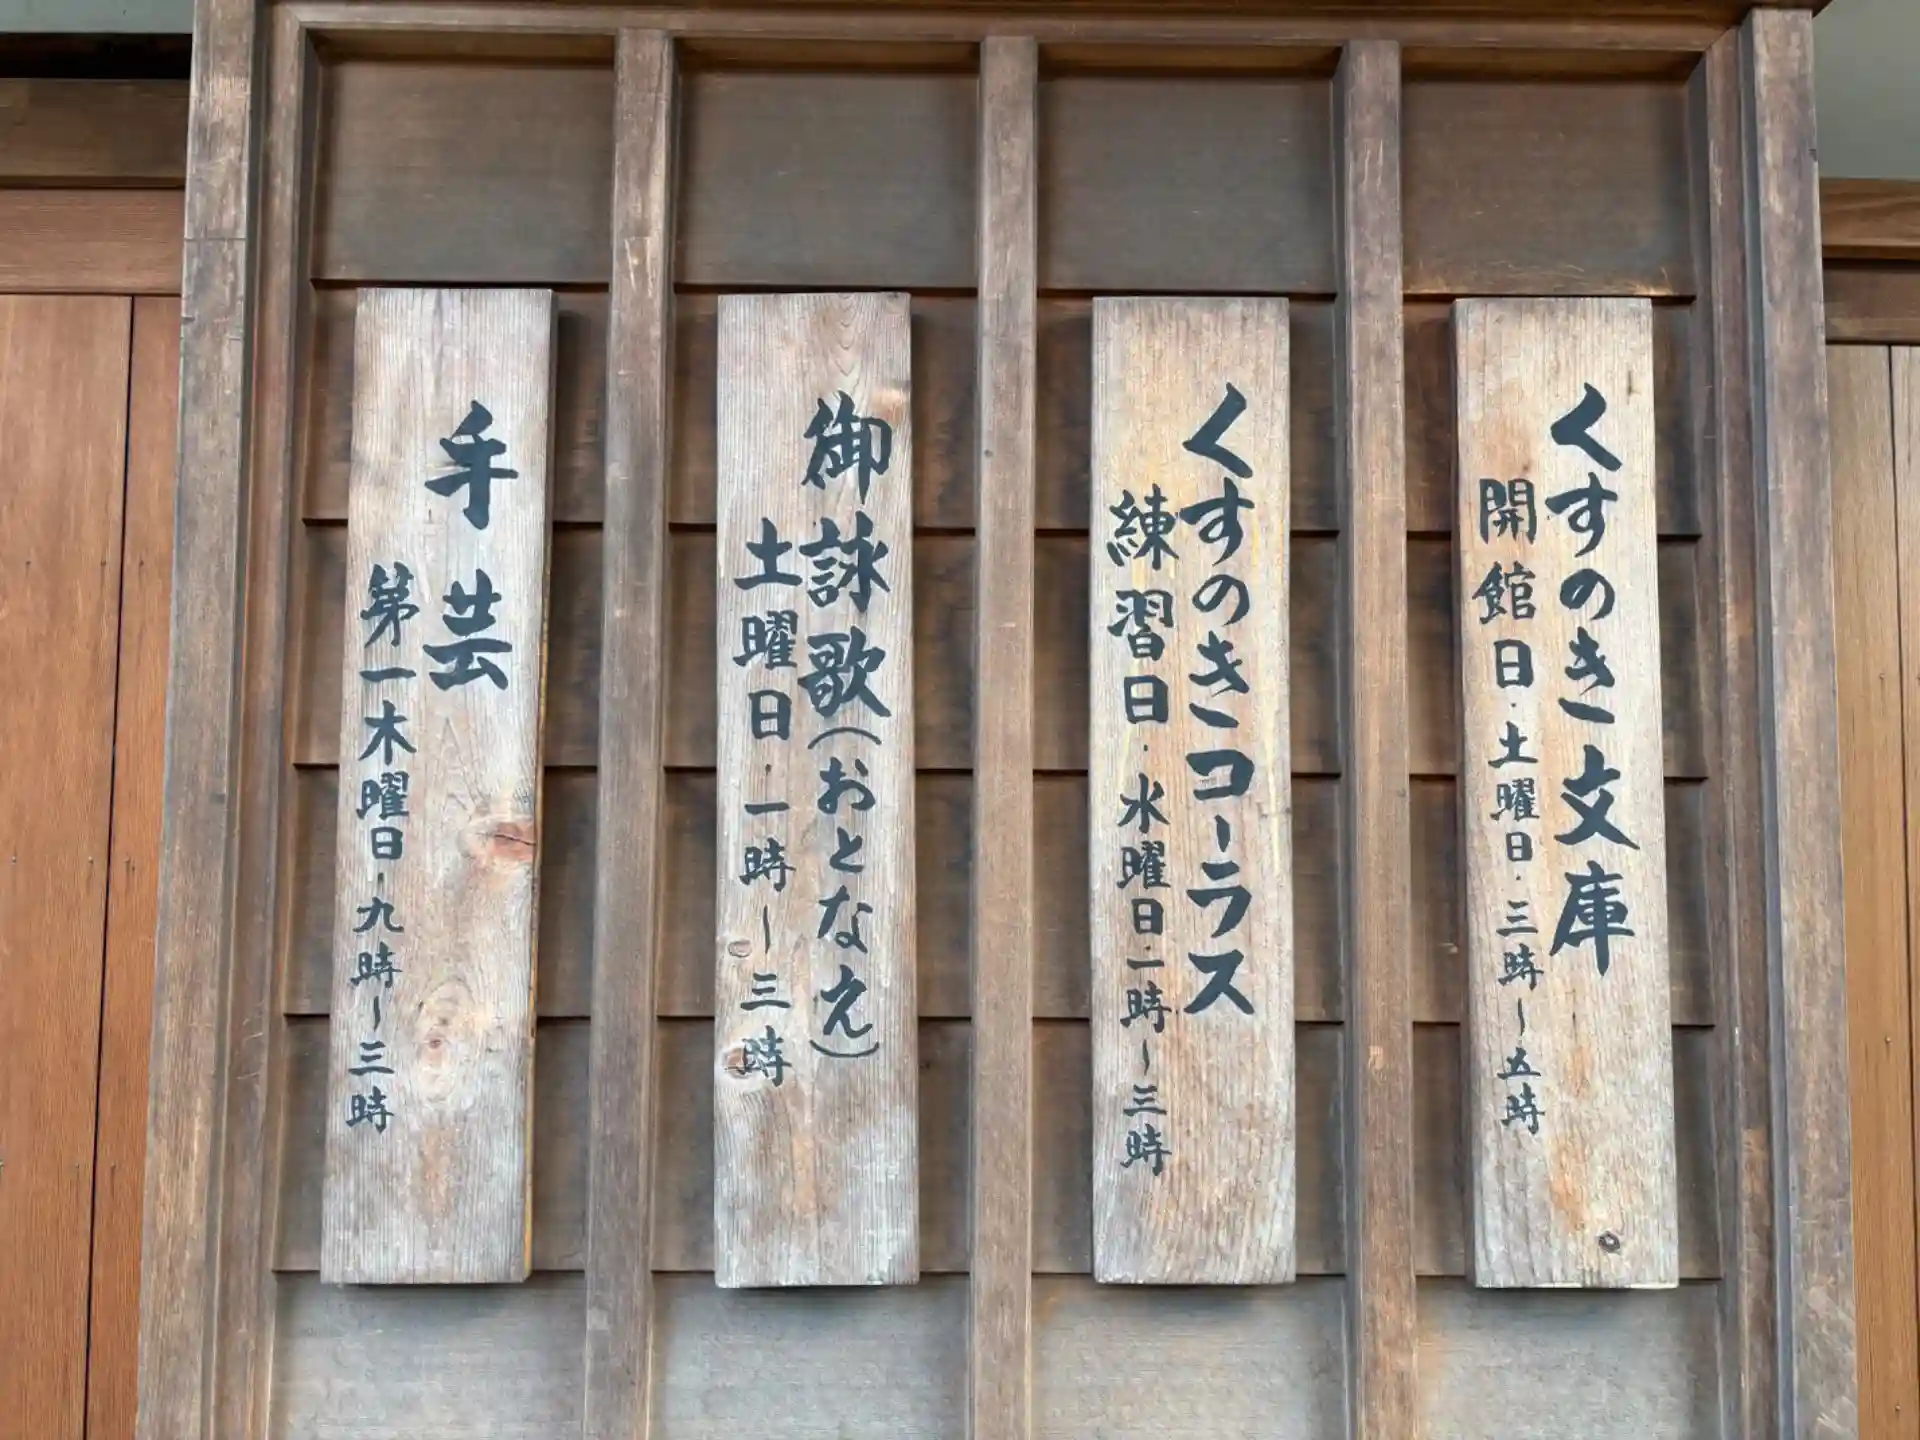 くすのき文庫
開館日・土曜日・三時〜五時
くすのきコーラス
練習日・水曜日・一時〜三時
御詠歌(おとなえ)
土曜日・一時〜三時
手芸
第一木曜日・九時〜三時